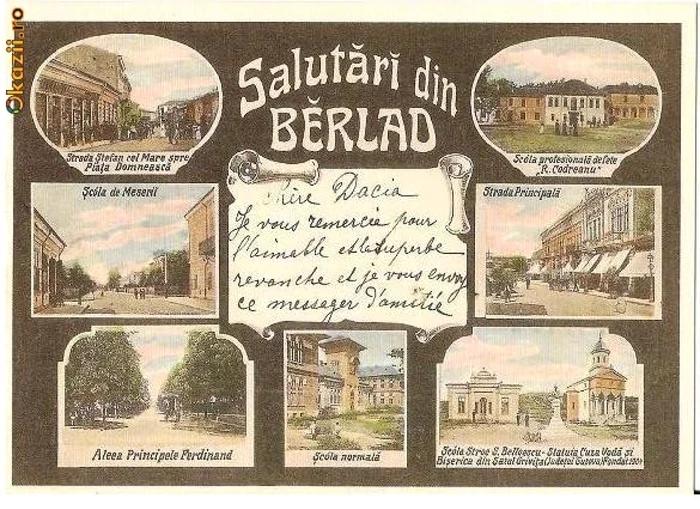 Okazii.ro
Salutări din
BĔRLAD
Strada Ștefan cel Mare spre
Piața Domnească
Șcóla profesională de fete
„R. Codreanu"
Șcóla de Meserii
Strada Principală
Chère Dacia
Je vous remercie pour
l'aimable et la superbe
revanche et je vous envoy
ce messager d'amitié
Aleea Principele Ferdinand
Șcóla normală
Șcóla Stroe S. Belloescu-Statuia Cuza Vodă și
Biserica din Satul Grivița (Județul Tutova) Fondat 1904